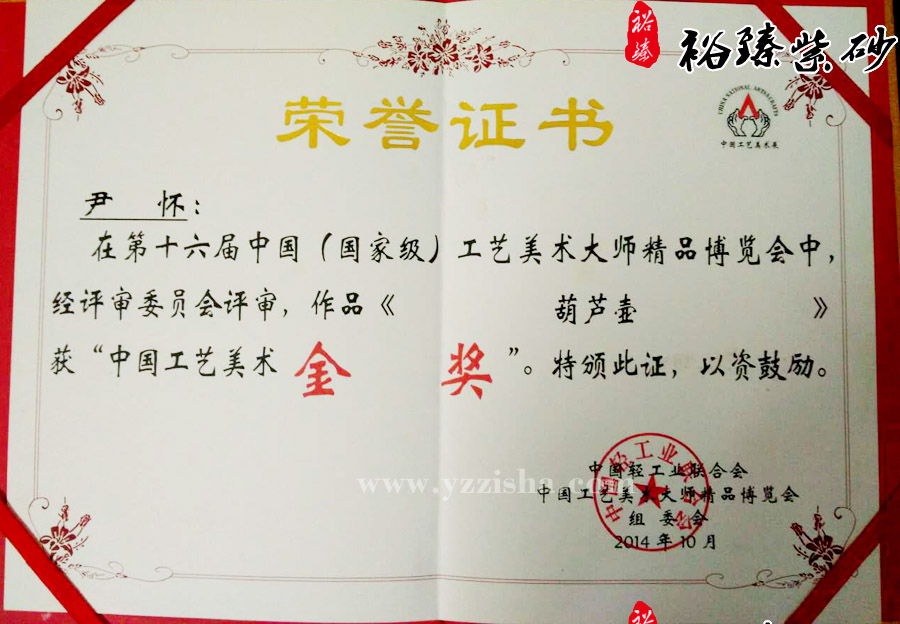 裕臻
裕臻紫砂
荣誉证书
CHINA NATIONAL ARTS & CRAFTS
中国工艺美术展
尹 怀：
在第十六届中国（国家级）工艺美术大师精品博览会中，
经评审委员会评审，作品《 葫芦壶 》
获“中国工艺美术 金 奖”。特颁此证，以资鼓励。
www.yzzisha.com
中国轻工业联合会
中国工艺美术大师精品博览会
组 委 会
2014年10月
中国轻工业联合会
裕